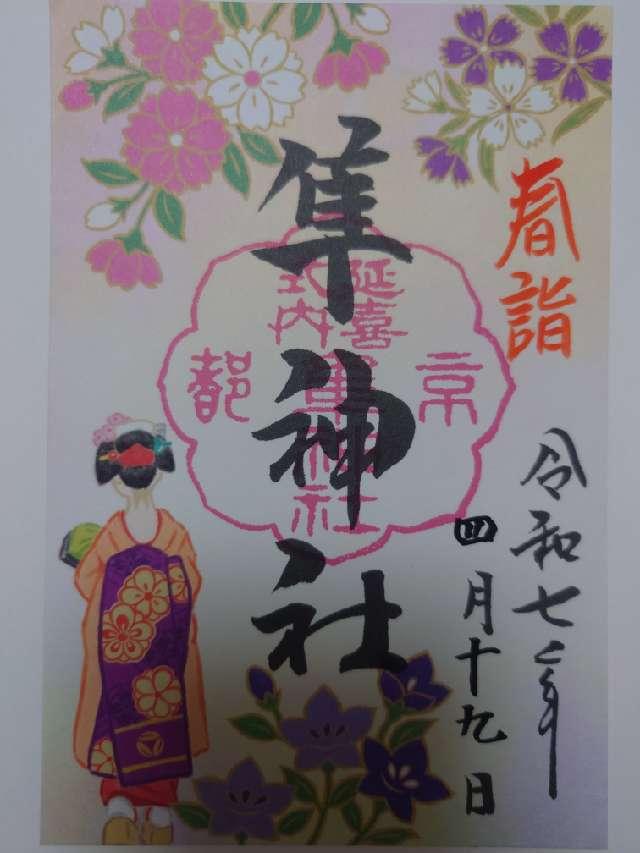 春詣
令和七年
四月十九日
隼神社
京都
延喜
式内
隼神社